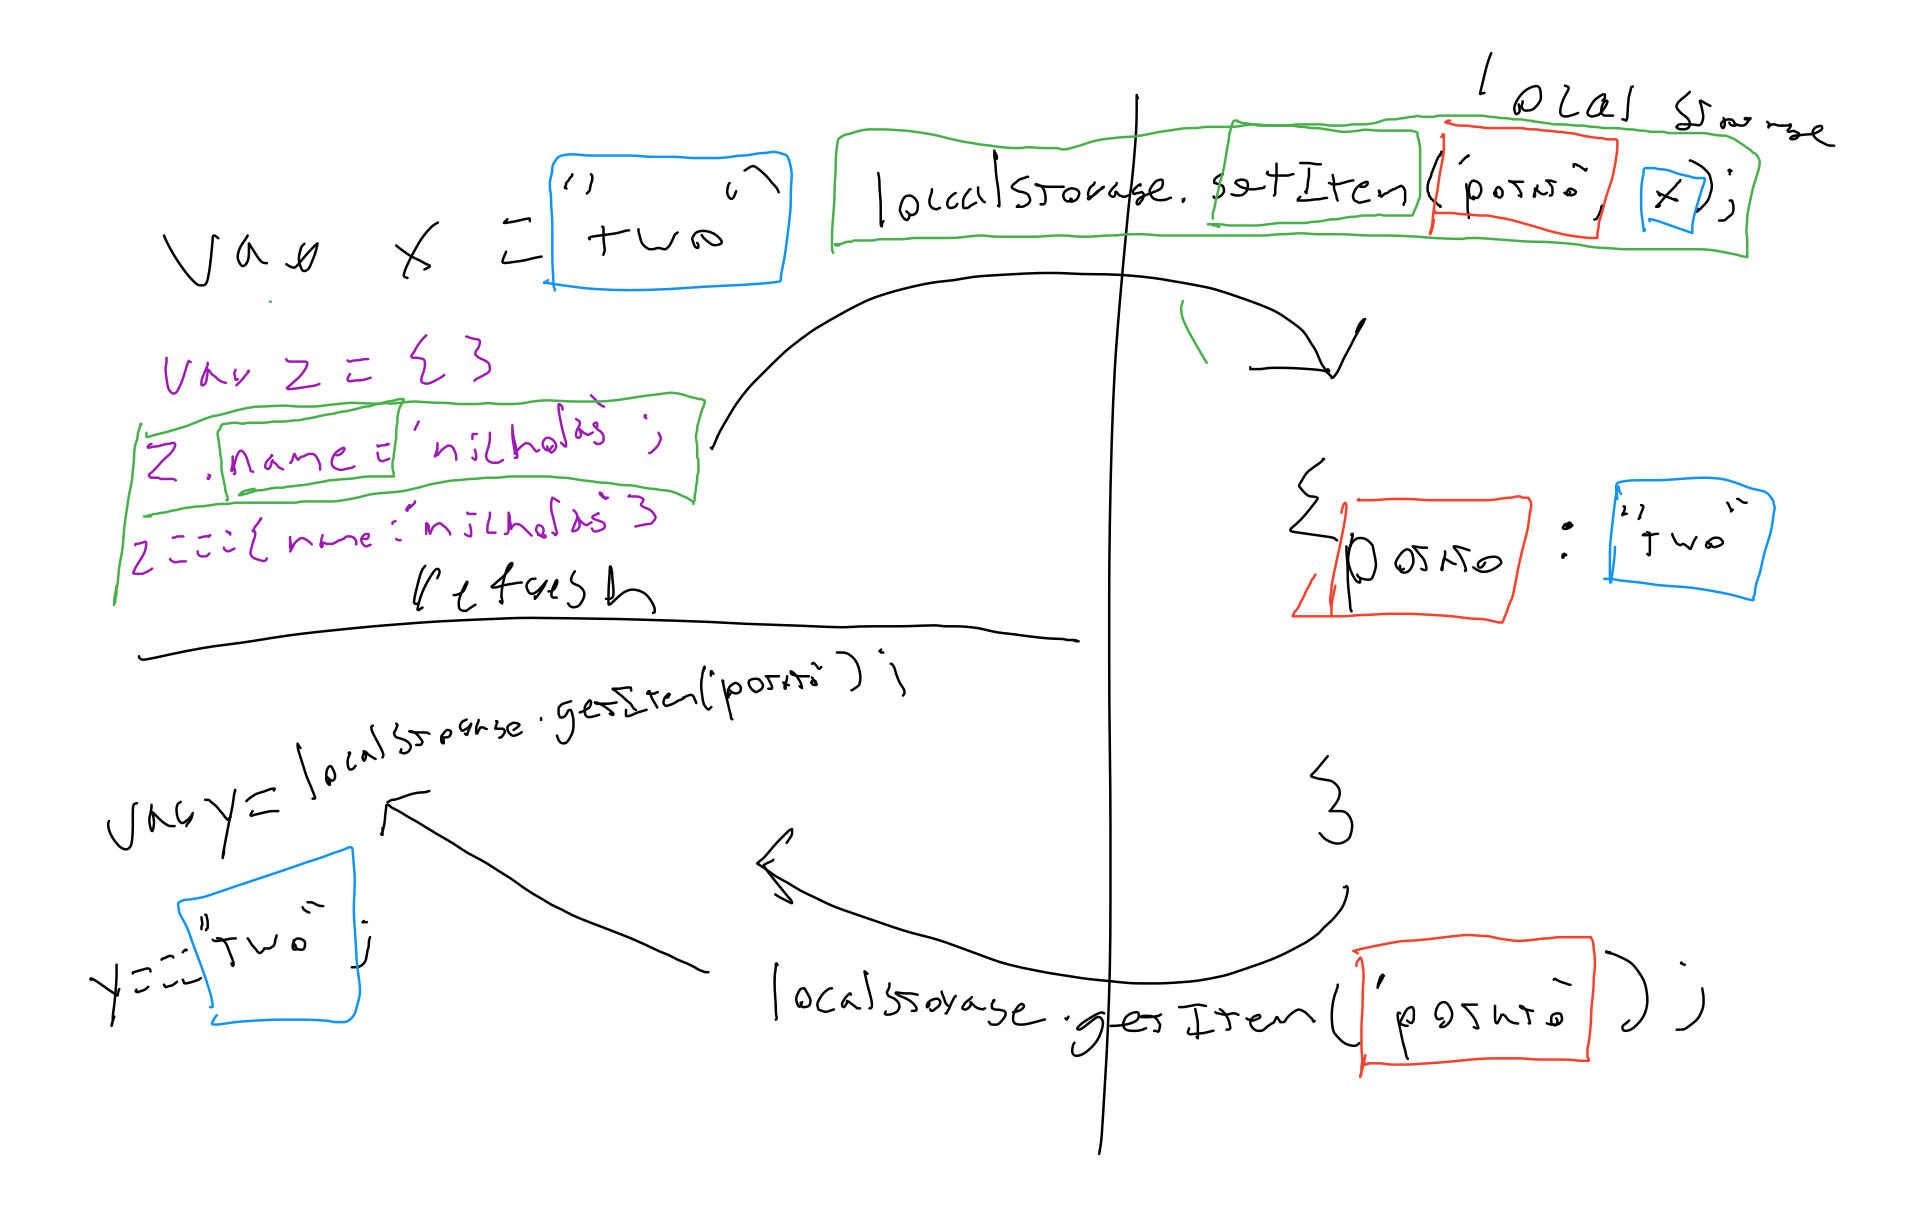 local storage
localStorage.setItem('potato', x);
var x = "two"
var z = { }
z.name = 'nicholas';
z === { name: 'nicholas' }
{
potato : "two"
refresh
var y = localStorage.getItem('potato');
}
y === "two";
localStorage.getItem('potato');